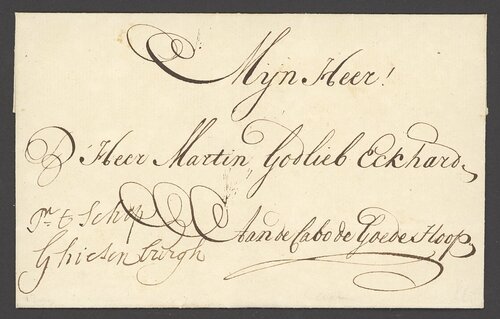 Mijn Heer!
D'Heer Martin Godlieb Eckhard,
Aan de Cabo de Goede Hoop
Pr. t Schip
Ghiesenburgh